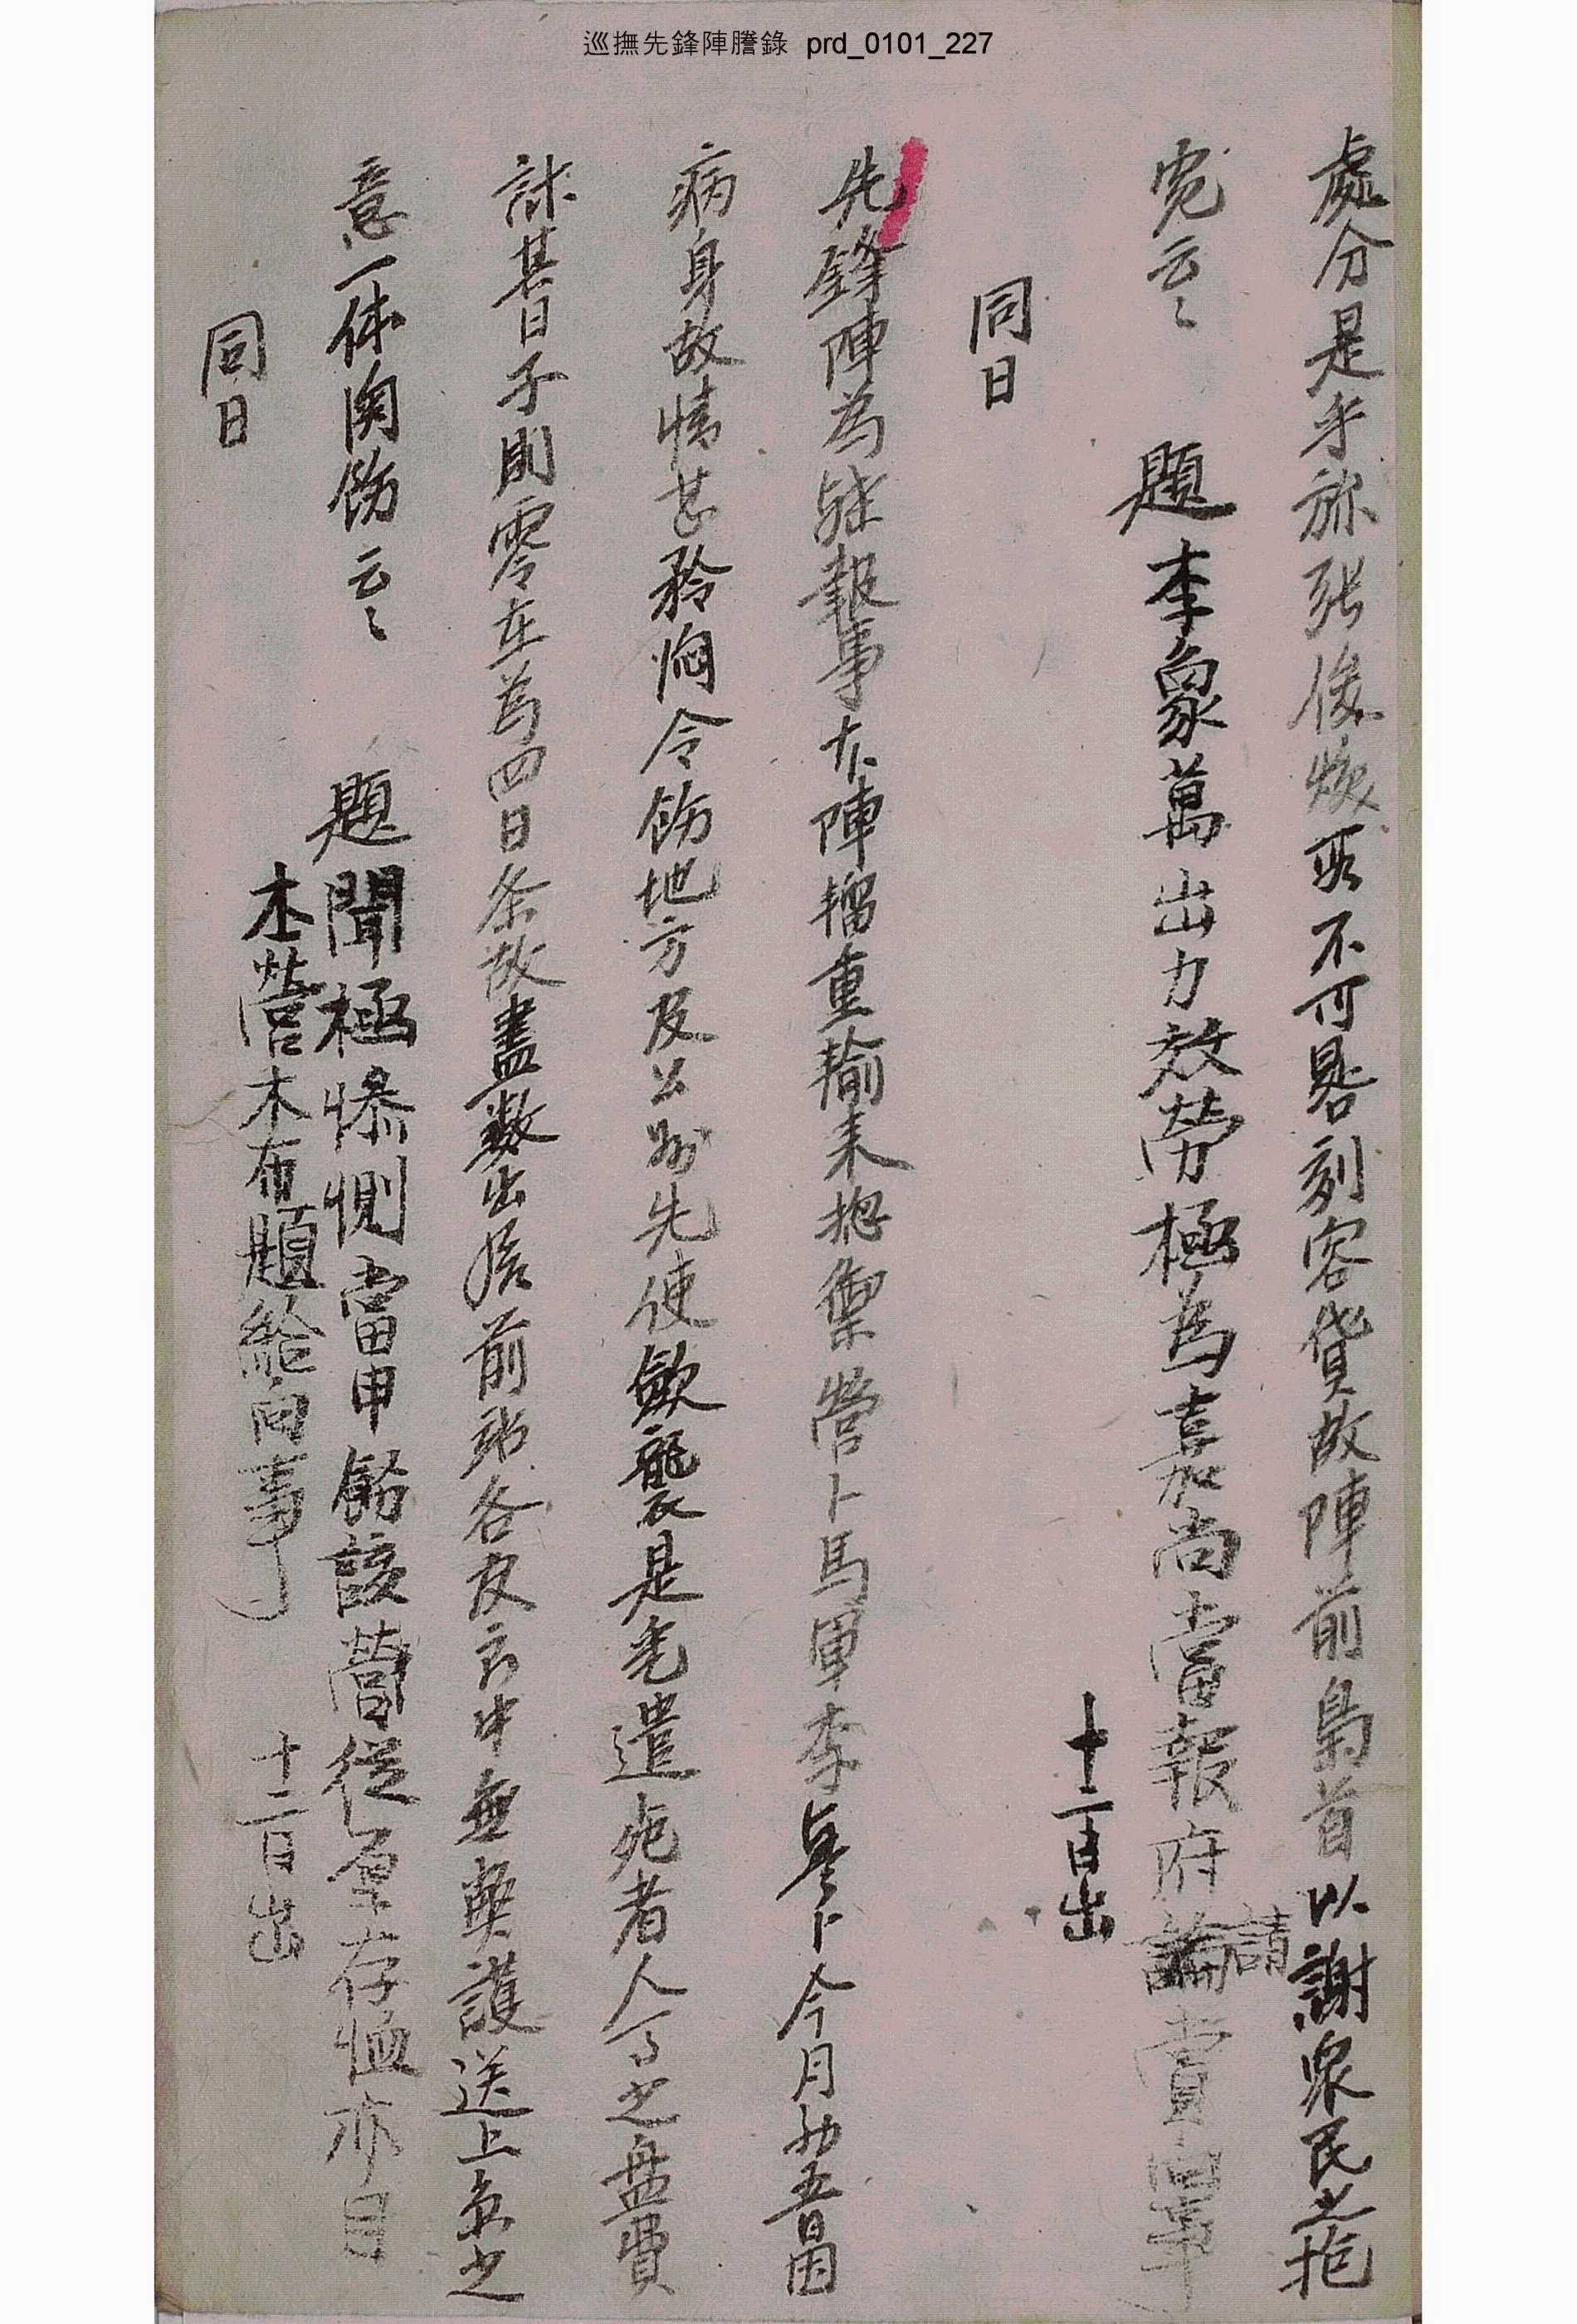 巡撫先鋒陣謄錄 prd_0101_227
處分是乎旀張俊焕段不可晷刻容貸故陣前梟首以謝衆民之抱
寃云〻 題李象萬出力效勞極爲嘉尚當報府請論賞向事
十二日出
同日
先鋒陣爲牒報事本陣輜重輸來摠禦營卜馬軍李卜今月初五日因
病身故情甚矜悶令飭地方及公州先使歛襲是遣死者人馬之盘費
計其日子則零在爲四日条故盡數出給前站各及云中無獘護送上京之
意一体関飭云〻 題聞極慘惻當申飭該營從厚存恤亦自
本營木布題給向事 十二日出
同日